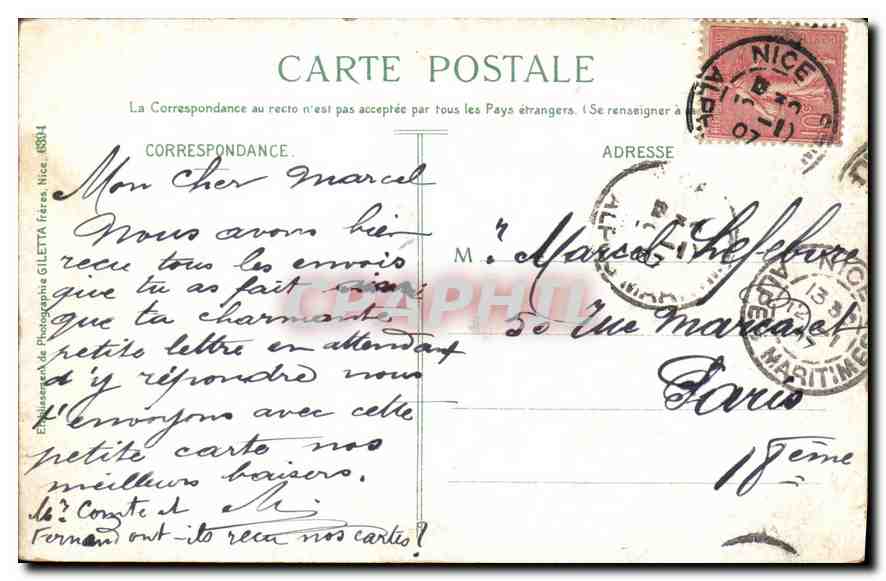 CARTE POSTALE
La Correspondance au recto n'est pas acceptée par tous les Pays étrangers. (Se renseigner à
CORRESPONDANCE.
ADRESSE
Etablissement de Photographie GILETTA frères, Nice, 6394
Mon cher Marcel
Nous avons bien
reçu tous les envois
que tu as fait
que ta charmante
petite lettre en attendant
d'y répondre nous
t'envoyons avec cette
petite carte nos
meilleurs baisers.
Mr Comte et
Fernand ont-ils recu nos cartes?
M. r Marcel Lefebvre
50 rue Marcadet
Paris
18ème
NICE
ALPES
07
ALPES MARI
NICE
13
ALPES MARITIMES
10
CPAPHIL